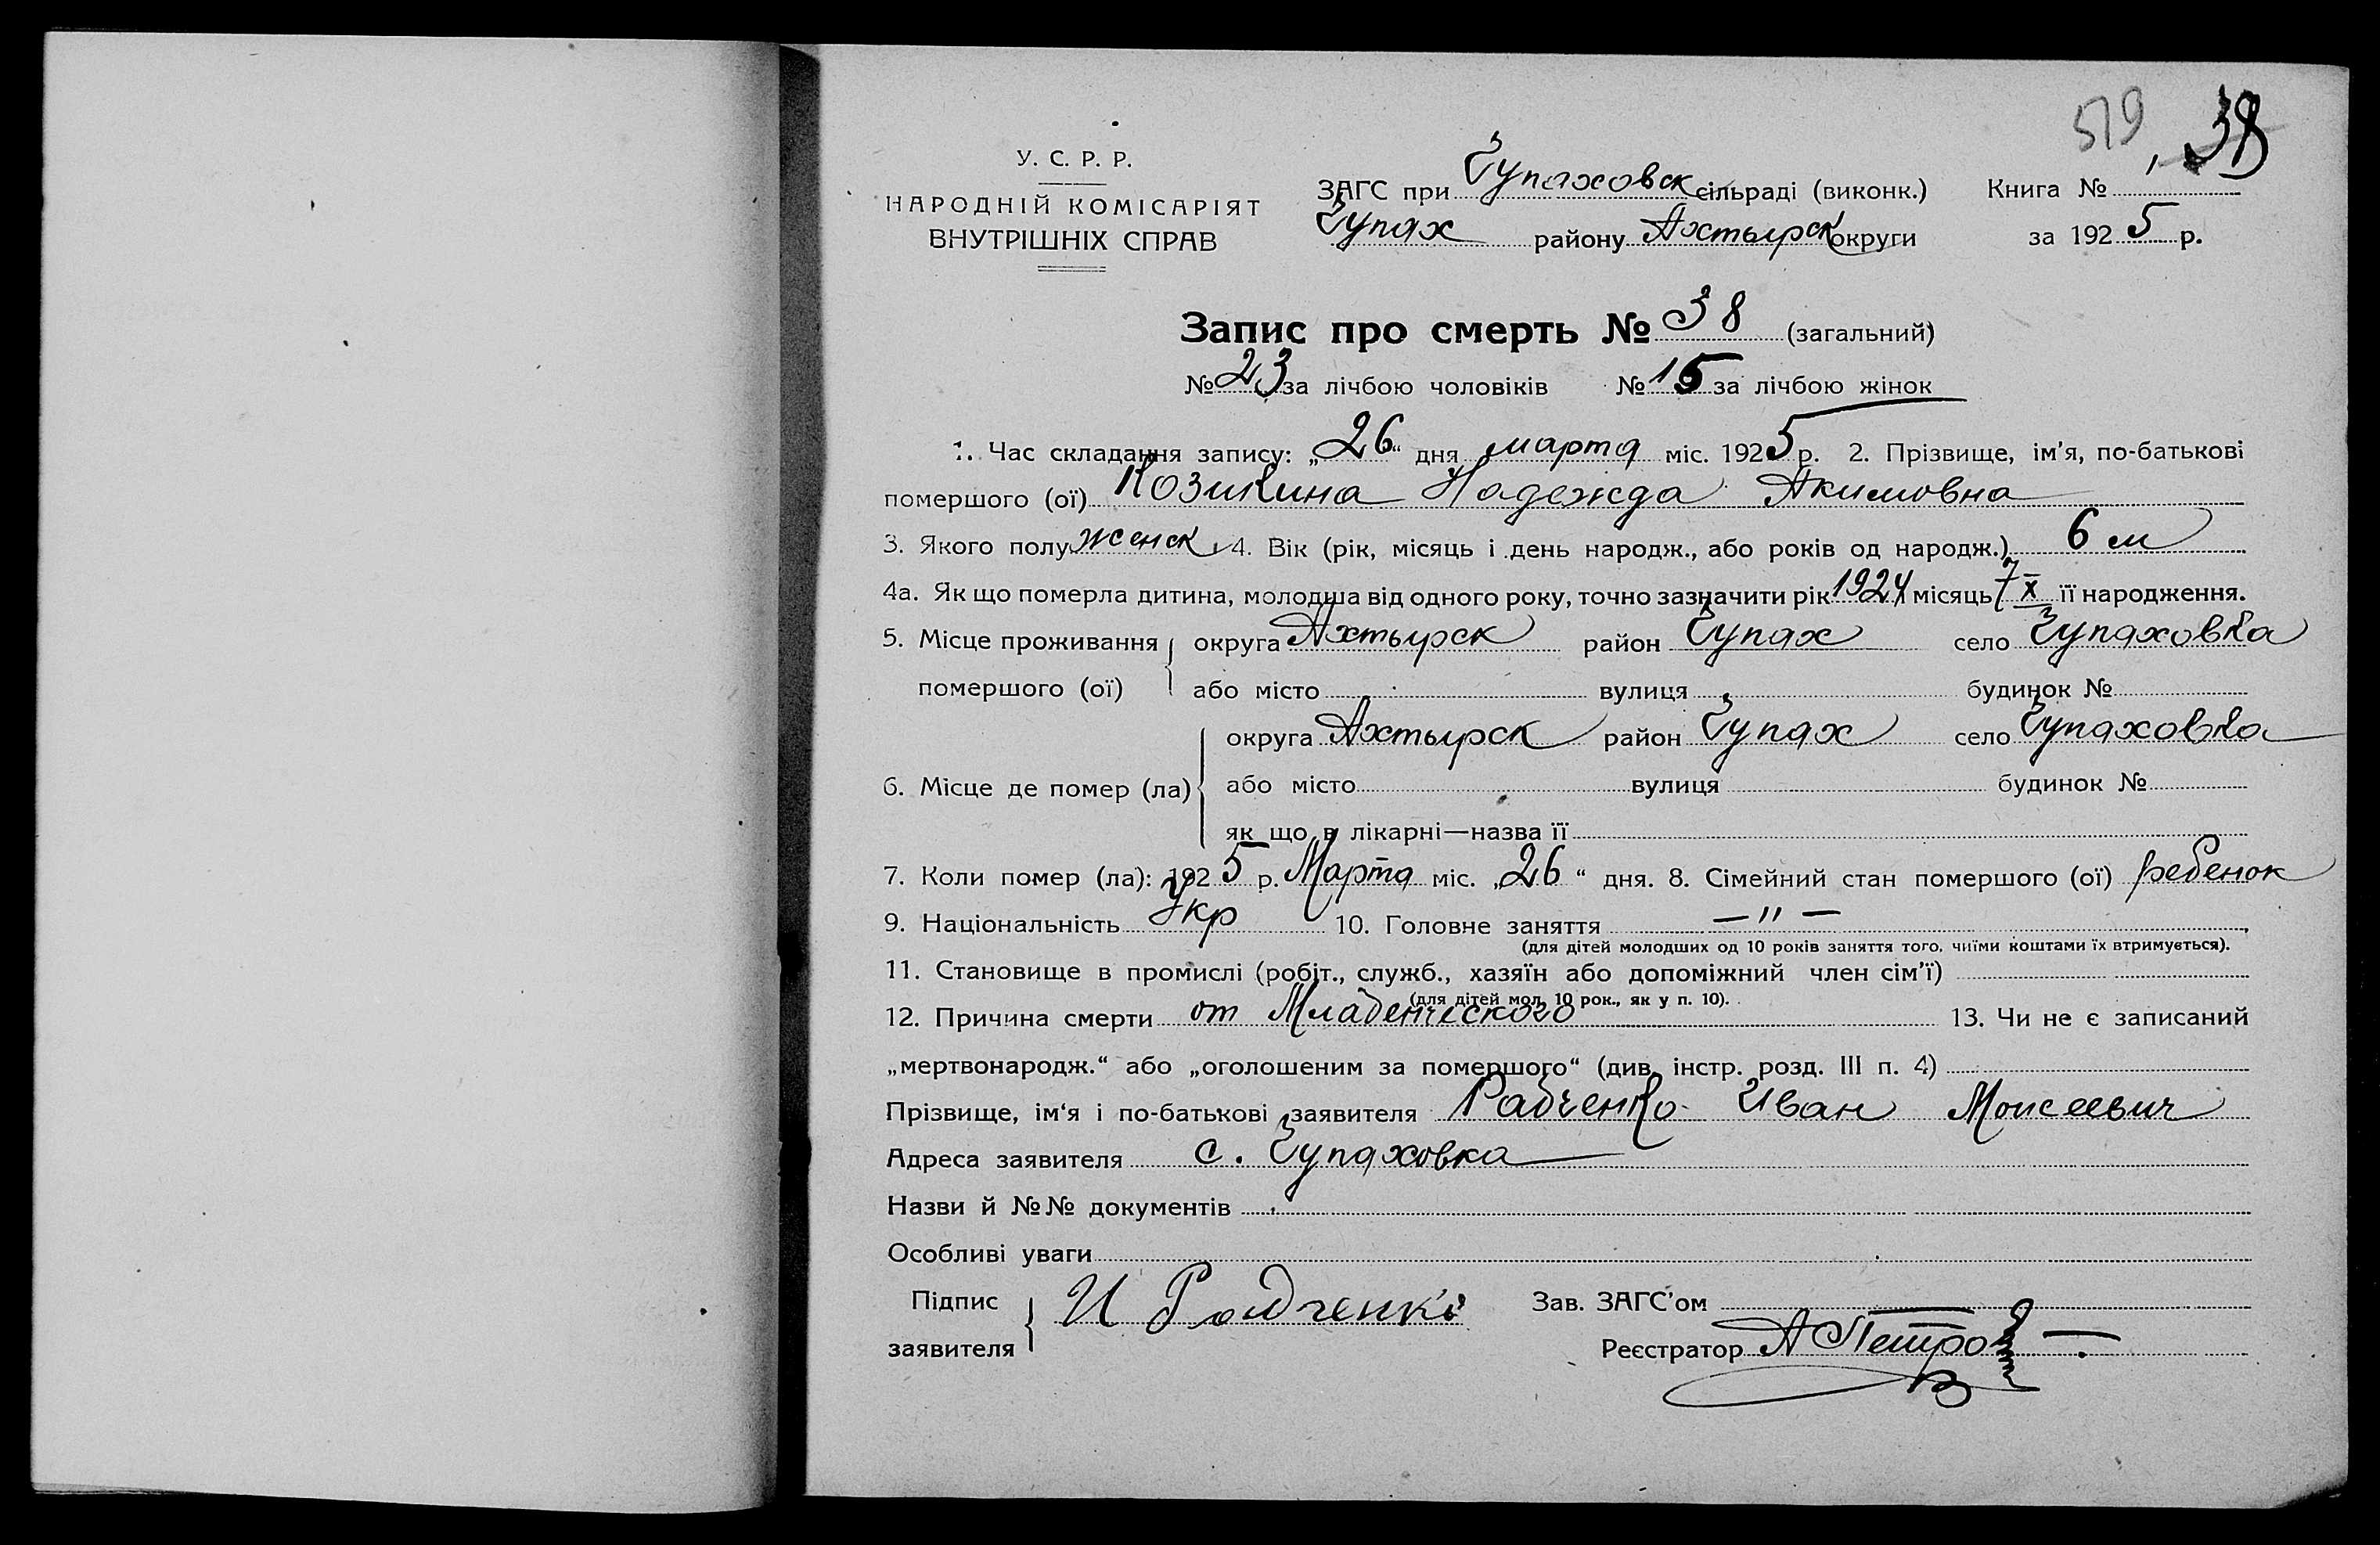 519 38
У. С. Р. Р.
НАРОДНІЙ КОМІСАРІЯТ
ВНУТРІШНІХ СПРАВ
ЗАГС при Чупаховск сільраді (виконк.) Книга №
Чупах району Ахтырск округи за 1925 р.
Запис про смерть № 38 (загальний)
№ 23 за лічбою чоловіків № 15 за лічбою жінок
1. Час складання запису: „26“ дня марта міс. 1925 р. 2. Прізвище, ім’я, по-батькові
помершого (ої) Козикина Надежда Акимовна
3. Якого полу женск 4. Вік (рік, місяць і день народж., або років од народж.) 6 м
4а. Як що померла дитина, молодша від одного року, точно зазначити рік 1924 місяць 7/X її народження.
5. Місце проживання округа Ахтырск район Чупах село Чупаховка
помершого (ої) або місто вулиця будинок №
округа Ахтырск район Чупах село Чупаховка
6. Місце де помер (ла) або місто вулиця будинок №
як що в лікарні—назва її
7. Коли помер (ла): 1925 р. Марта міс. „26“ дня. 8. Сімейний стан помершого (ої) ребенок
9. Національність Укр 10. Головне заняття — " —
(для дітей молодших од 10 років заняття того, чиїми коштами їх втримується).
11. Становище в промислі (робіт., служб., хазяїн або допоміжний член сім’ї)
(для дітей мол. 10 рок., як у п. 10).
12. Причина смерти от Младенческого 13. Чи не є записаний
„мертвонародж.“ або „оголошеним за помершого“ (див. інстр. розд. III п. 4)
Прізвище, ім‘я і по-батькові заявителя Радченко Иван Моисеевич
Адреса заявителя с. Чупаховка
Назви й №№ документів
Особливі уваги
Підпис И Радченко Зав. ЗАГС’ом
заявителя Реєстратор А Петров